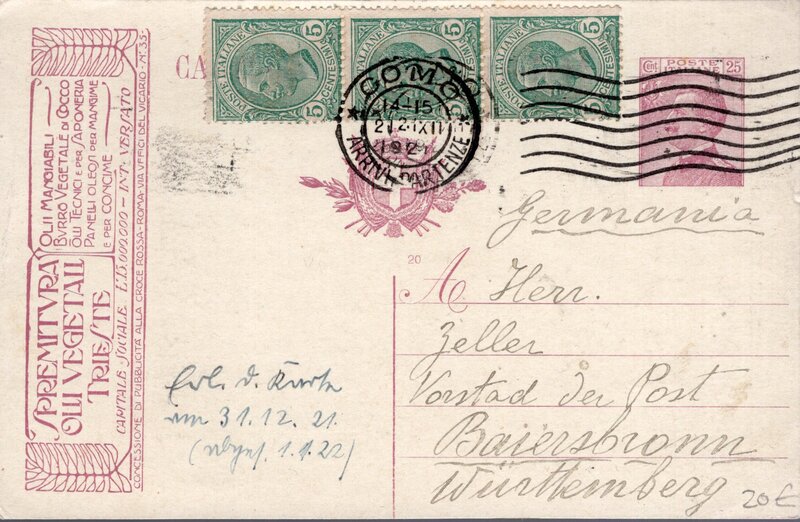 POSTE ITALIANE
5 CENTESIMI 5
POSTE ITALIANE
5 CENTESIMI 5
POSTE ITALIANE
5 CENTESIMI 5
CA
COMO
14-15
21 XII
192
ARRIVI PARTENZE
Cent POSTE 25
ITALIANE
SPREMITVRA
OLII VEGETALI
TRIESTE
OLII MANGIABILI
BVRRO VEGETALE DI COCCO
OLII TECNICI E PER SAPONERIA
PANELLI OLEOSI PER MANGIME
E PER CONCIME
CAPITALE SOCIALE L.15.000.000 - INT: VERSATO
CONCESSIONE DI PUBBLICITÀ ALLA CROCE ROSSA - ROMA - VIA UFFICI DEL VICARIO - N° 35
Germania
20
A Herr.
Zeller
Vorstad der Post
Baiersbronn
Württemberg
Erl. d. Karte
am 31.12.21.
1.1.22)
20€